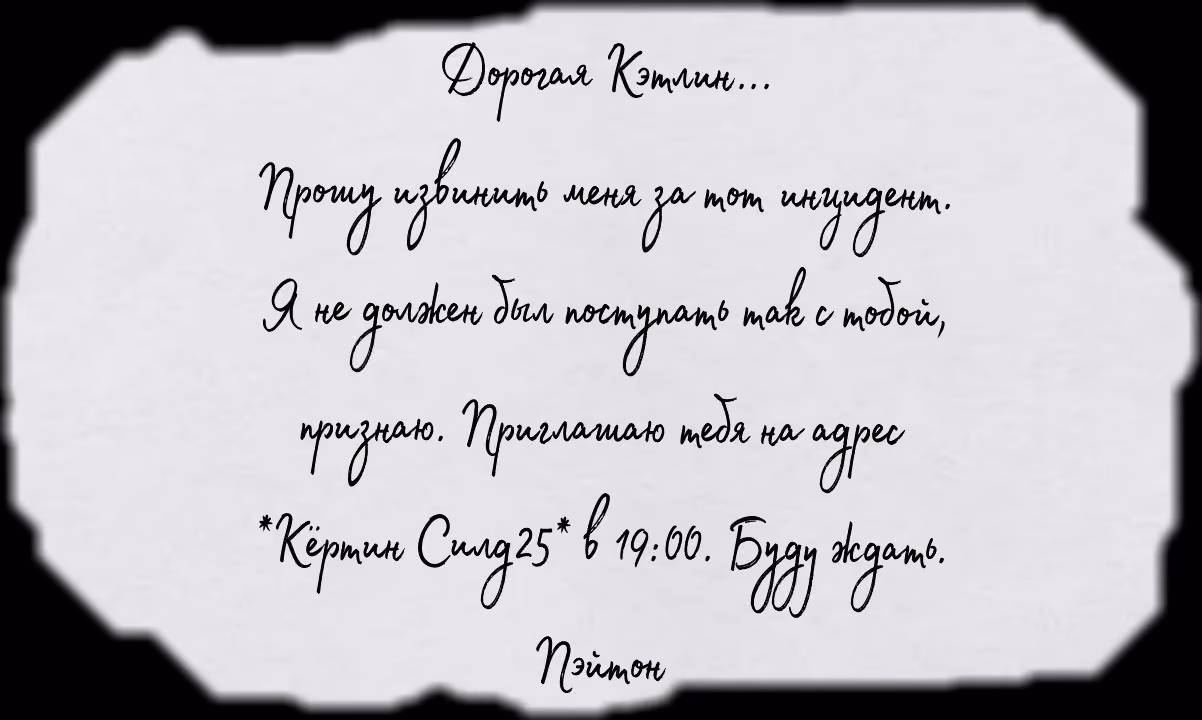 Дорогая Кэтлин...
Прошу извинить меня за тот инцидент.
Я не должен был поступать так с тобой,
признаю. Приглашаю тебя на адрес
*Кёртин Силд25* в 19:00. Буду ждать.
Пэйтон